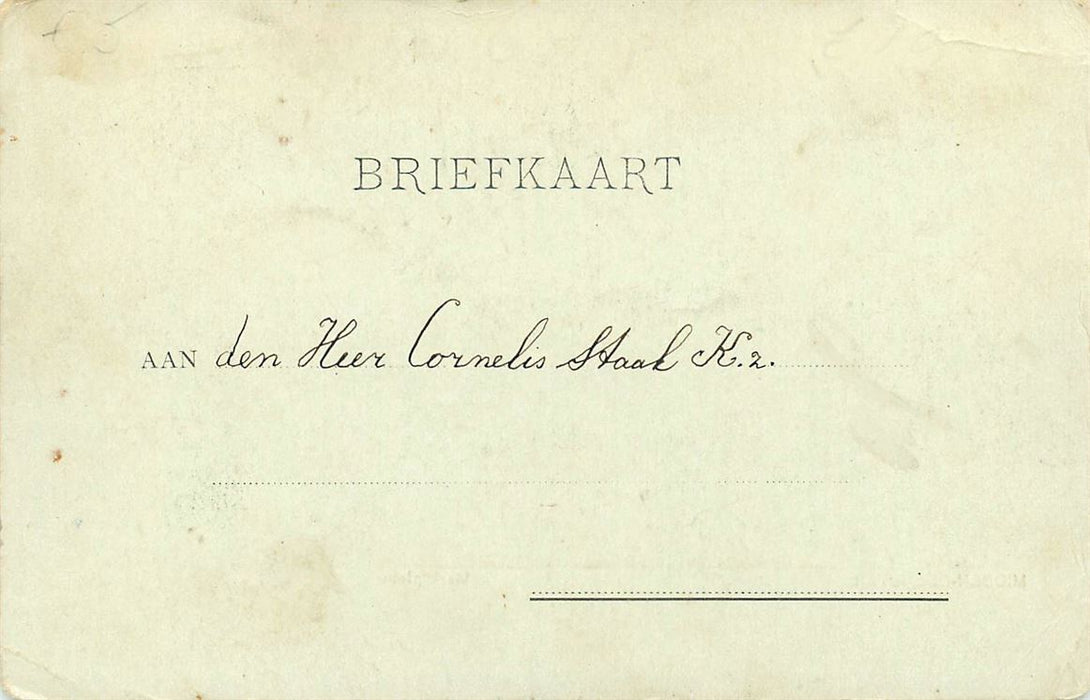 BRIEFKAART
AAN den Heer Cornelis Staak K.z.